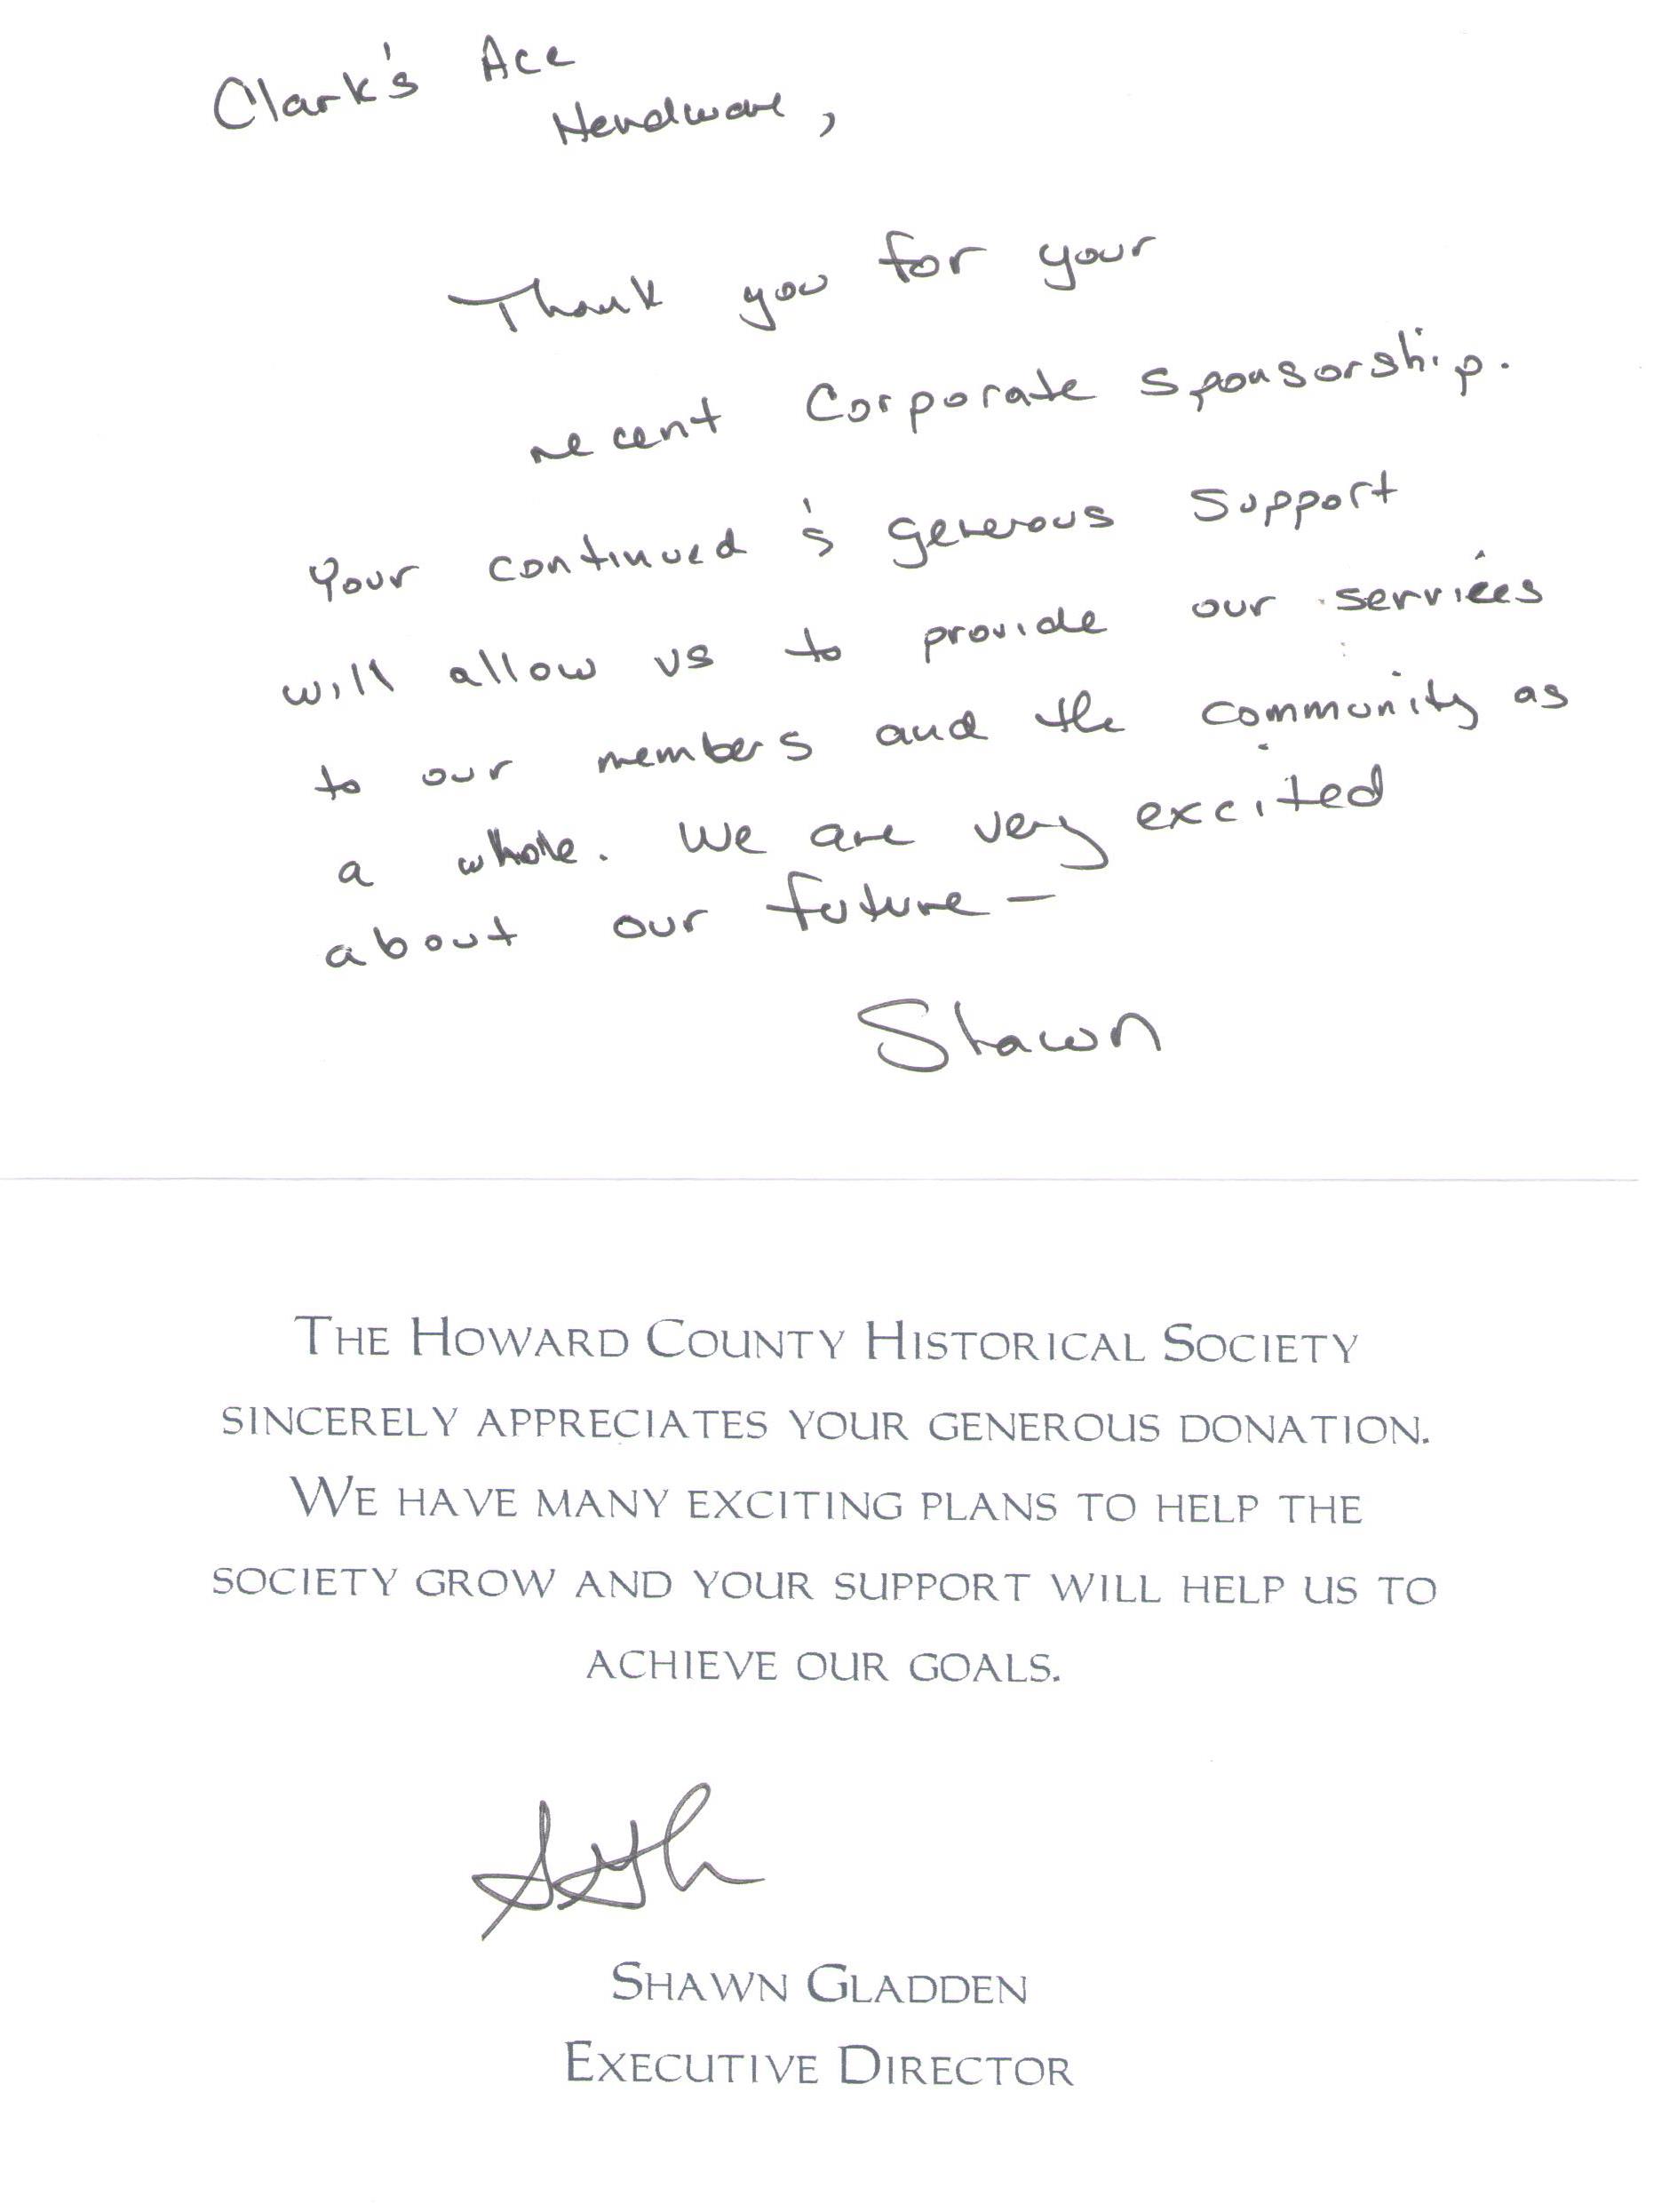 Clark's Ace
Hardware,
Thank you for your
recent Corporate Sponsorship.
Your continued & generous Support
will allow us to provide our services
to our members and the community as
a whole. We are very excited
about our future –
Shawn
THE HOWARD COUNTY HISTORICAL SOCIETY
SINCERELY APPRECIATES YOUR GENEROUS DONATION.
WE HAVE MANY EXCITING PLANS TO HELP THE
SOCIETY GROW AND YOUR SUPPORT WILL HELP US TO
ACHIEVE OUR GOALS.
SHAWN GLADDEN
EXECUTIVE DIRECTOR